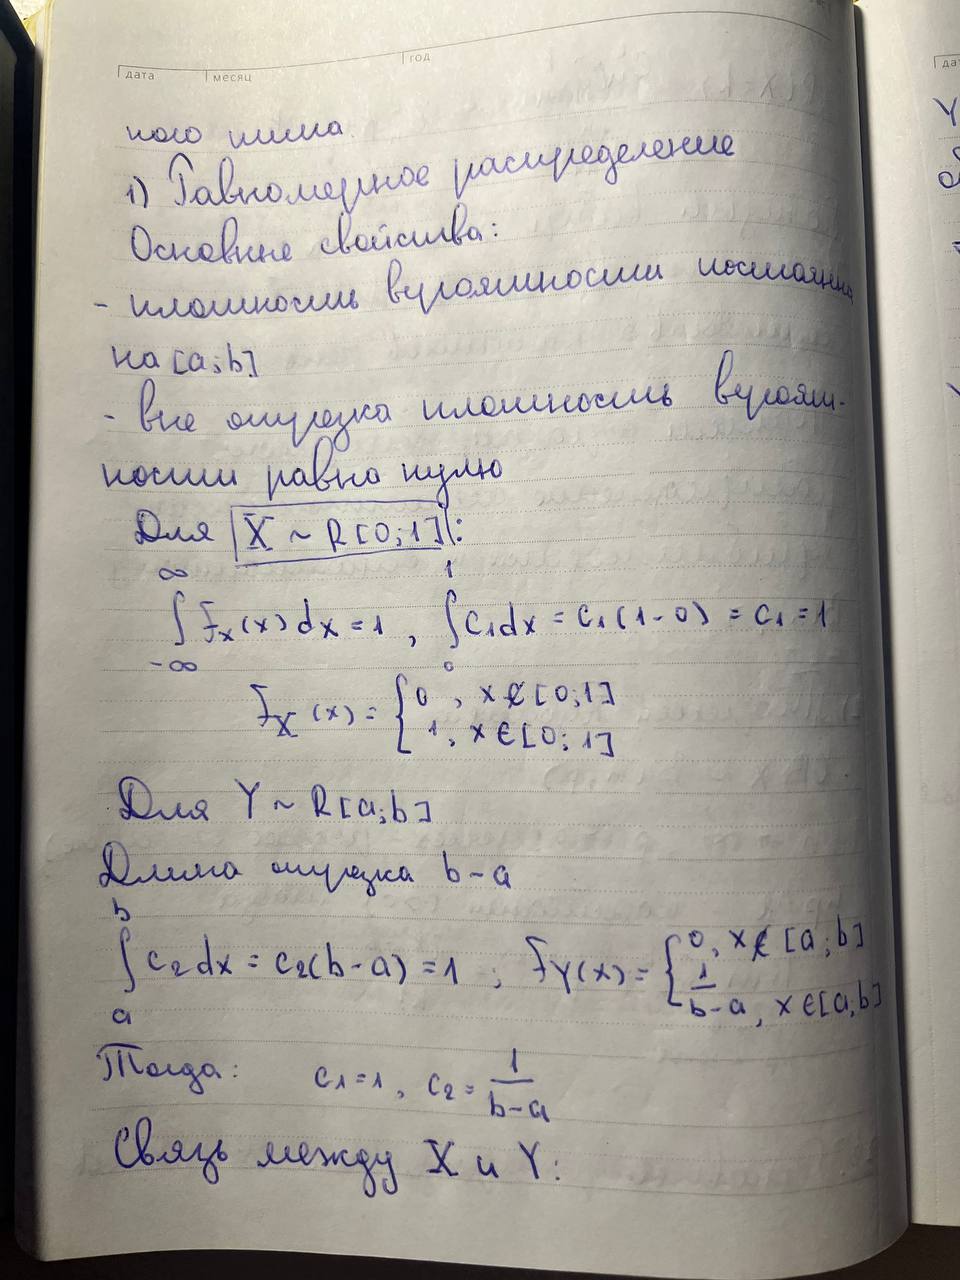 дата месяц год
ного типа
1) Равномерное распределение
Основные свойства:
- плотность вероятности постоянна
на [a;b]
- вне отрезка плотность вероят-
ности равна нулю
Для X ~ R[0;1]:
∞∫-∞ fx(x)dx = 1, 1∫0 c1dx = c1(1-0) = c1 = 1
fX(x) = { 0, x∉[0;1]
1, x∈[0;1]
Для Y ~ R[a;b]
Длина отрезка b-a
b∫a c2dx = c2(b-a) = 1; fY(x) = { 0, x∉[a;b]
1/b-a, x∈[a,b]
Тогда: c1=1, c2= 1/b-a
Связь между X и Y:
дат
Y